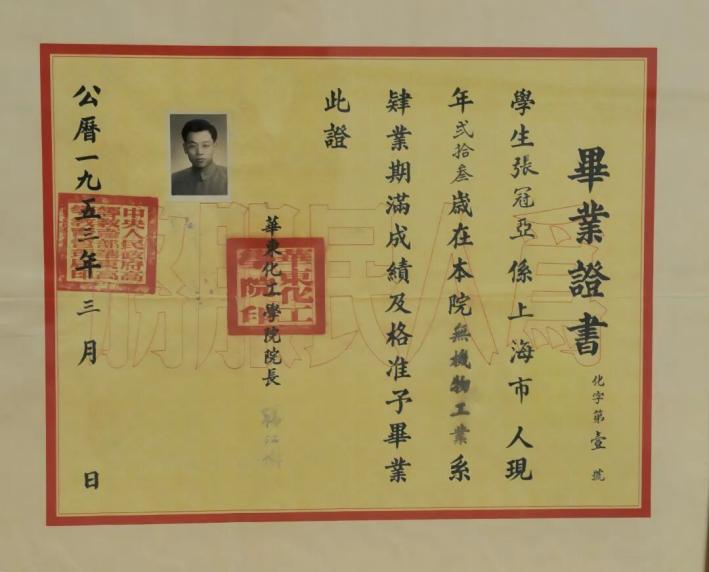 畢業證書
化字第壹號
學生張冠亞係上海市人現
年弍拾叁歲在本院無機物工業系
肄業期滿成績及格准予畢業
此證
華東化工學院院長
華東化工學院印
公曆一九五三年三月 日
為人民服務